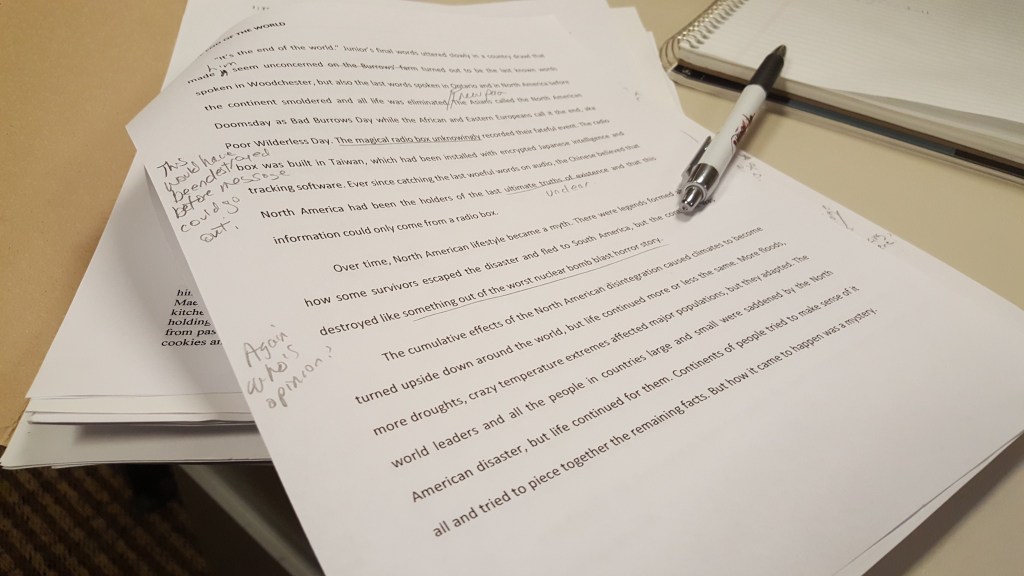 OF THE WORLD
"It's the end of the world." Junior's final words uttered slowly in a country drawl that
him
made it seem unconcerned on the Burrows' farm turned out to be the last known words
spoken in Woodchester, but also the last words spoken in Ontario and in North America before
the continent smoldered and all life was eliminated. The Asians called the North American
Doomsday as Bad Burrows Day while the African and Eastern Europeans call it the end, aka
Poor Wilderless Day. The magical radio box unknowingly recorded their fateful event. The radio
box was built in Taiwan, which had been installed with encrypted Japanese intelligence and
tracking software. Ever since catching the last woeful words on audio, the Chinese believed that
North America had been the holders of the last ultimate truths of existence and that this
unclear
information could only come from a radio box.
This
would have
been destroyed
before message
could go
out.
Over time, North American lifestyle became a myth. There were legends formed
how some survivors escaped the disaster and fled to South America, but the
destroyed like something out of the worst nuclear bomb blast horror story.
Again
who's
opinion?
The cumulative effects of the North American disintegration caused climates to become
turned upside down around the world, but life continued more or less the same. More floods,
more droughts, crazy temperature extremes affected major populations, but they adapted. The
world leaders and all the people in countries large and small were saddened by the North
American disaster, but life continued for them. Continents of people tried to make sense of it
all and tried to piece together the remaining facts. But how it came to happen was a mystery.
hin
Mae
kitche
holding
from pas
cookies an